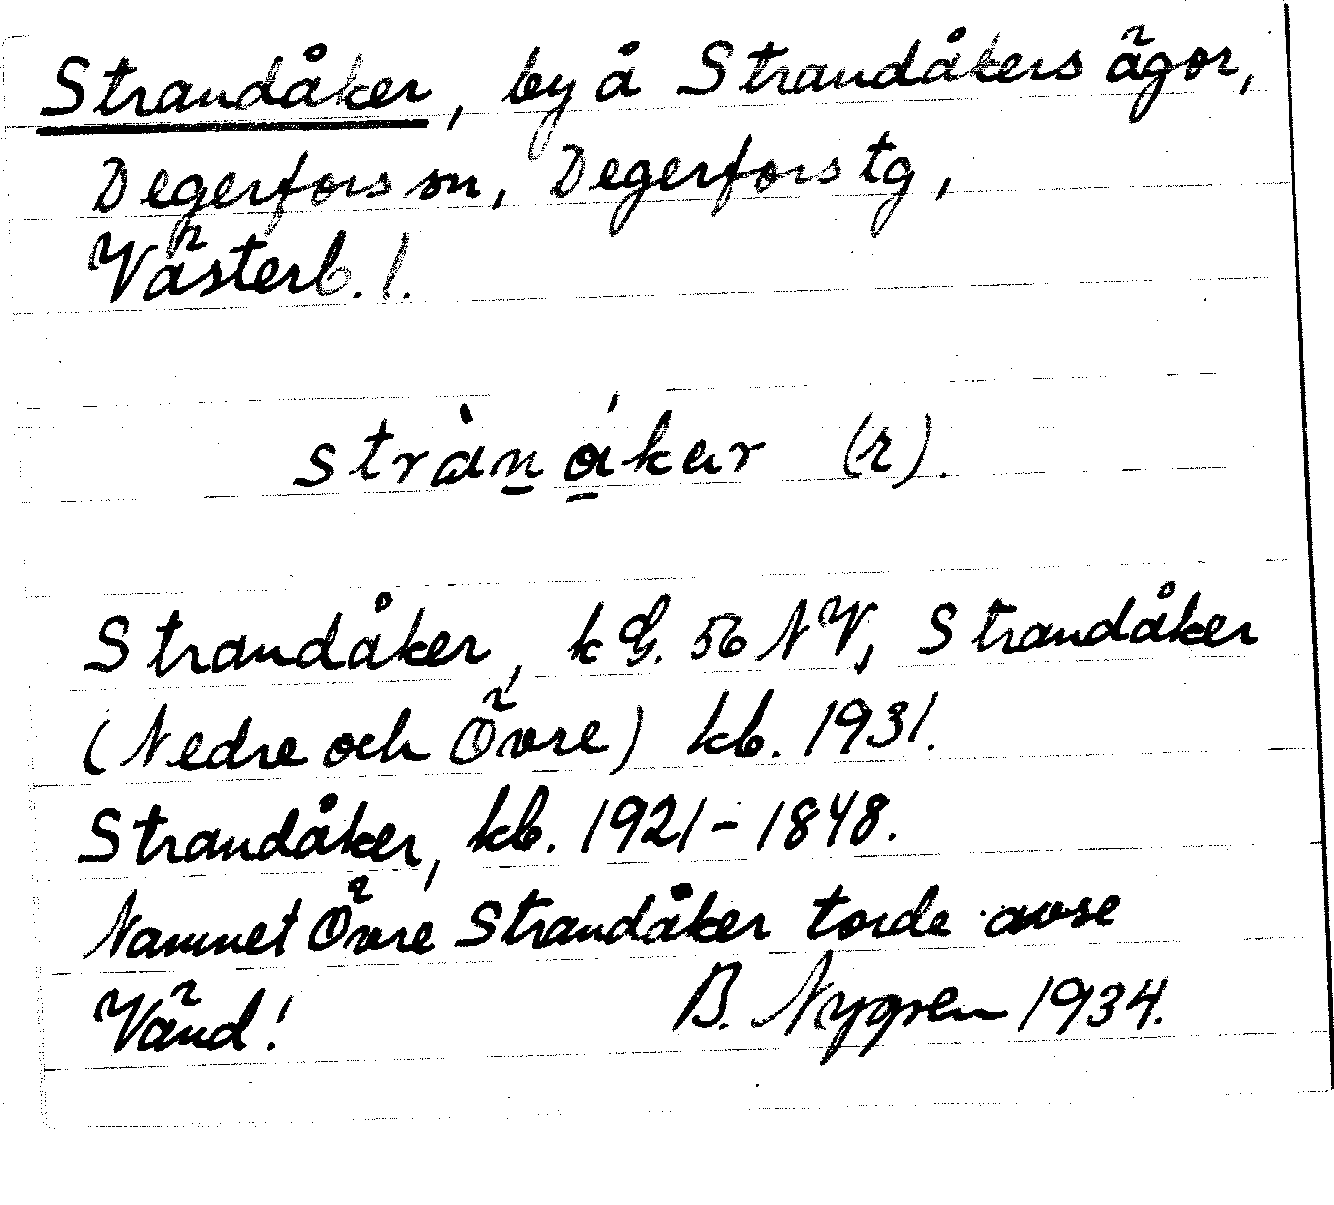 Strandåker, by å Strandåkers ägor,
Degerfors sn, Degerfors tg,
Västerb. l.
strànåkər (r).
Strandåker, kG. 56 NV, Strandåker
(Nedre och Övre) kb. 1931.
Strandåker, kb. 1921-1848.
Namnet Övre Strandåker torde avse
Vänd! B. Nygren 1934.